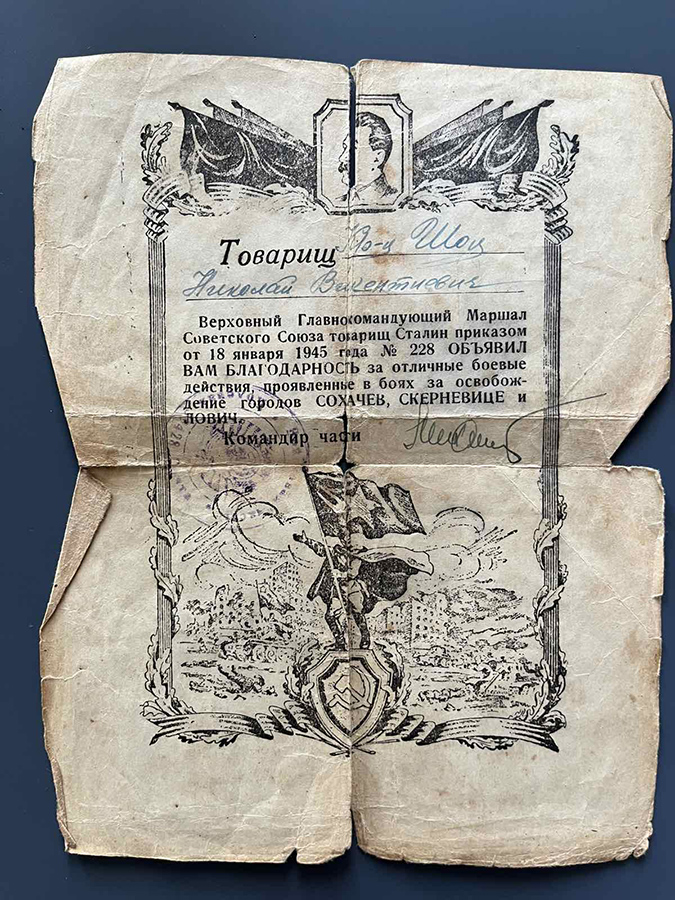 Товарищ Шоц
Николай Викентиевич
Верховный Главнокомандующий Маршал
Советского Союза товарищ Сталин приказом
от 18 января 1945 года № 228 ОБЪЯВИЛ
ВАМ БЛАГОДАРНОСТЬ за отличные боевые
действия, проявленные в боях за освобож-
дение городов СОХАЧЕВ, СКЕРНЕВИЦЕ и
ЛОВИЧ.
Командир части